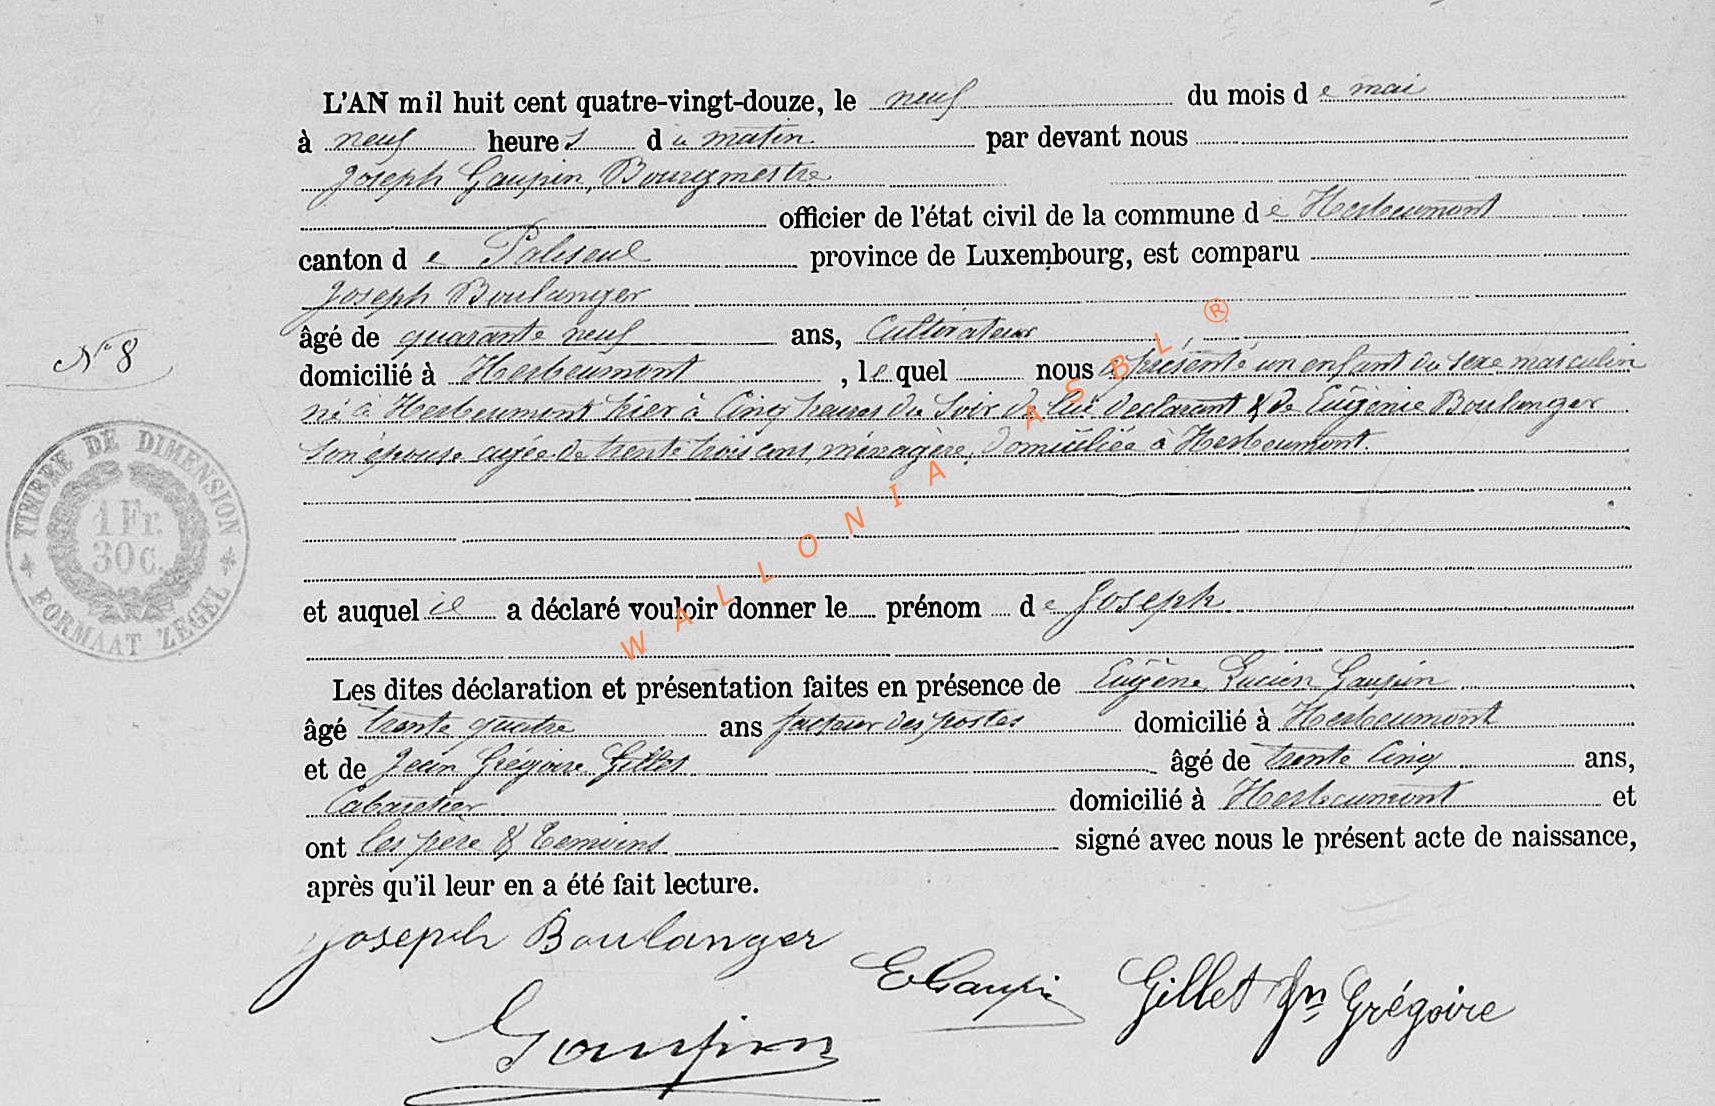 L'AN mil huit cent quatre-vingt-douze, le neuf du mois de mai
à neuf heures du matin par devant nous
Joseph Gaupin, Bourgmestre
officier de l'état civil de la commune de Herbeumont
canton de Paliseul province de Luxembourg, est comparu
Joseph Boulanger
âgé de quarante neuf ans, Cultivateur
N° 8
domicilié à Herbeumont, lequel nous a présenté un enfant du sexe masculin
né à Herbeumont hier à Cinq heures du Soir de lui déclarant & de Eugénie Boulanger
son épouse agée de trente trois ans, ménagère, domiciliée à Herbeumont.
TIMBRE DE DIMENSION
1 Fr.
30 c.
FORMAAT ZEGEL
et auquel il a déclaré vouloir donner le prénom de Joseph
Les dites déclaration et présentation faites en présence de Eugène Lucien Gaupin
âgé trente quatre ans facteur des postes domicilié à Herbeumont
et de Jean Grégoire Gillet âgé de trente Cinq ans,
Cabaretier domicilié à Herbeumont et
ont les père & témoins signé avec nous le présent acte de naissance,
après qu'il leur en a été fait lecture.
Joseph Boulanger
E Gaupin Gillet Jn Grégoire
Gaupin
WALLONIA ASBL ®